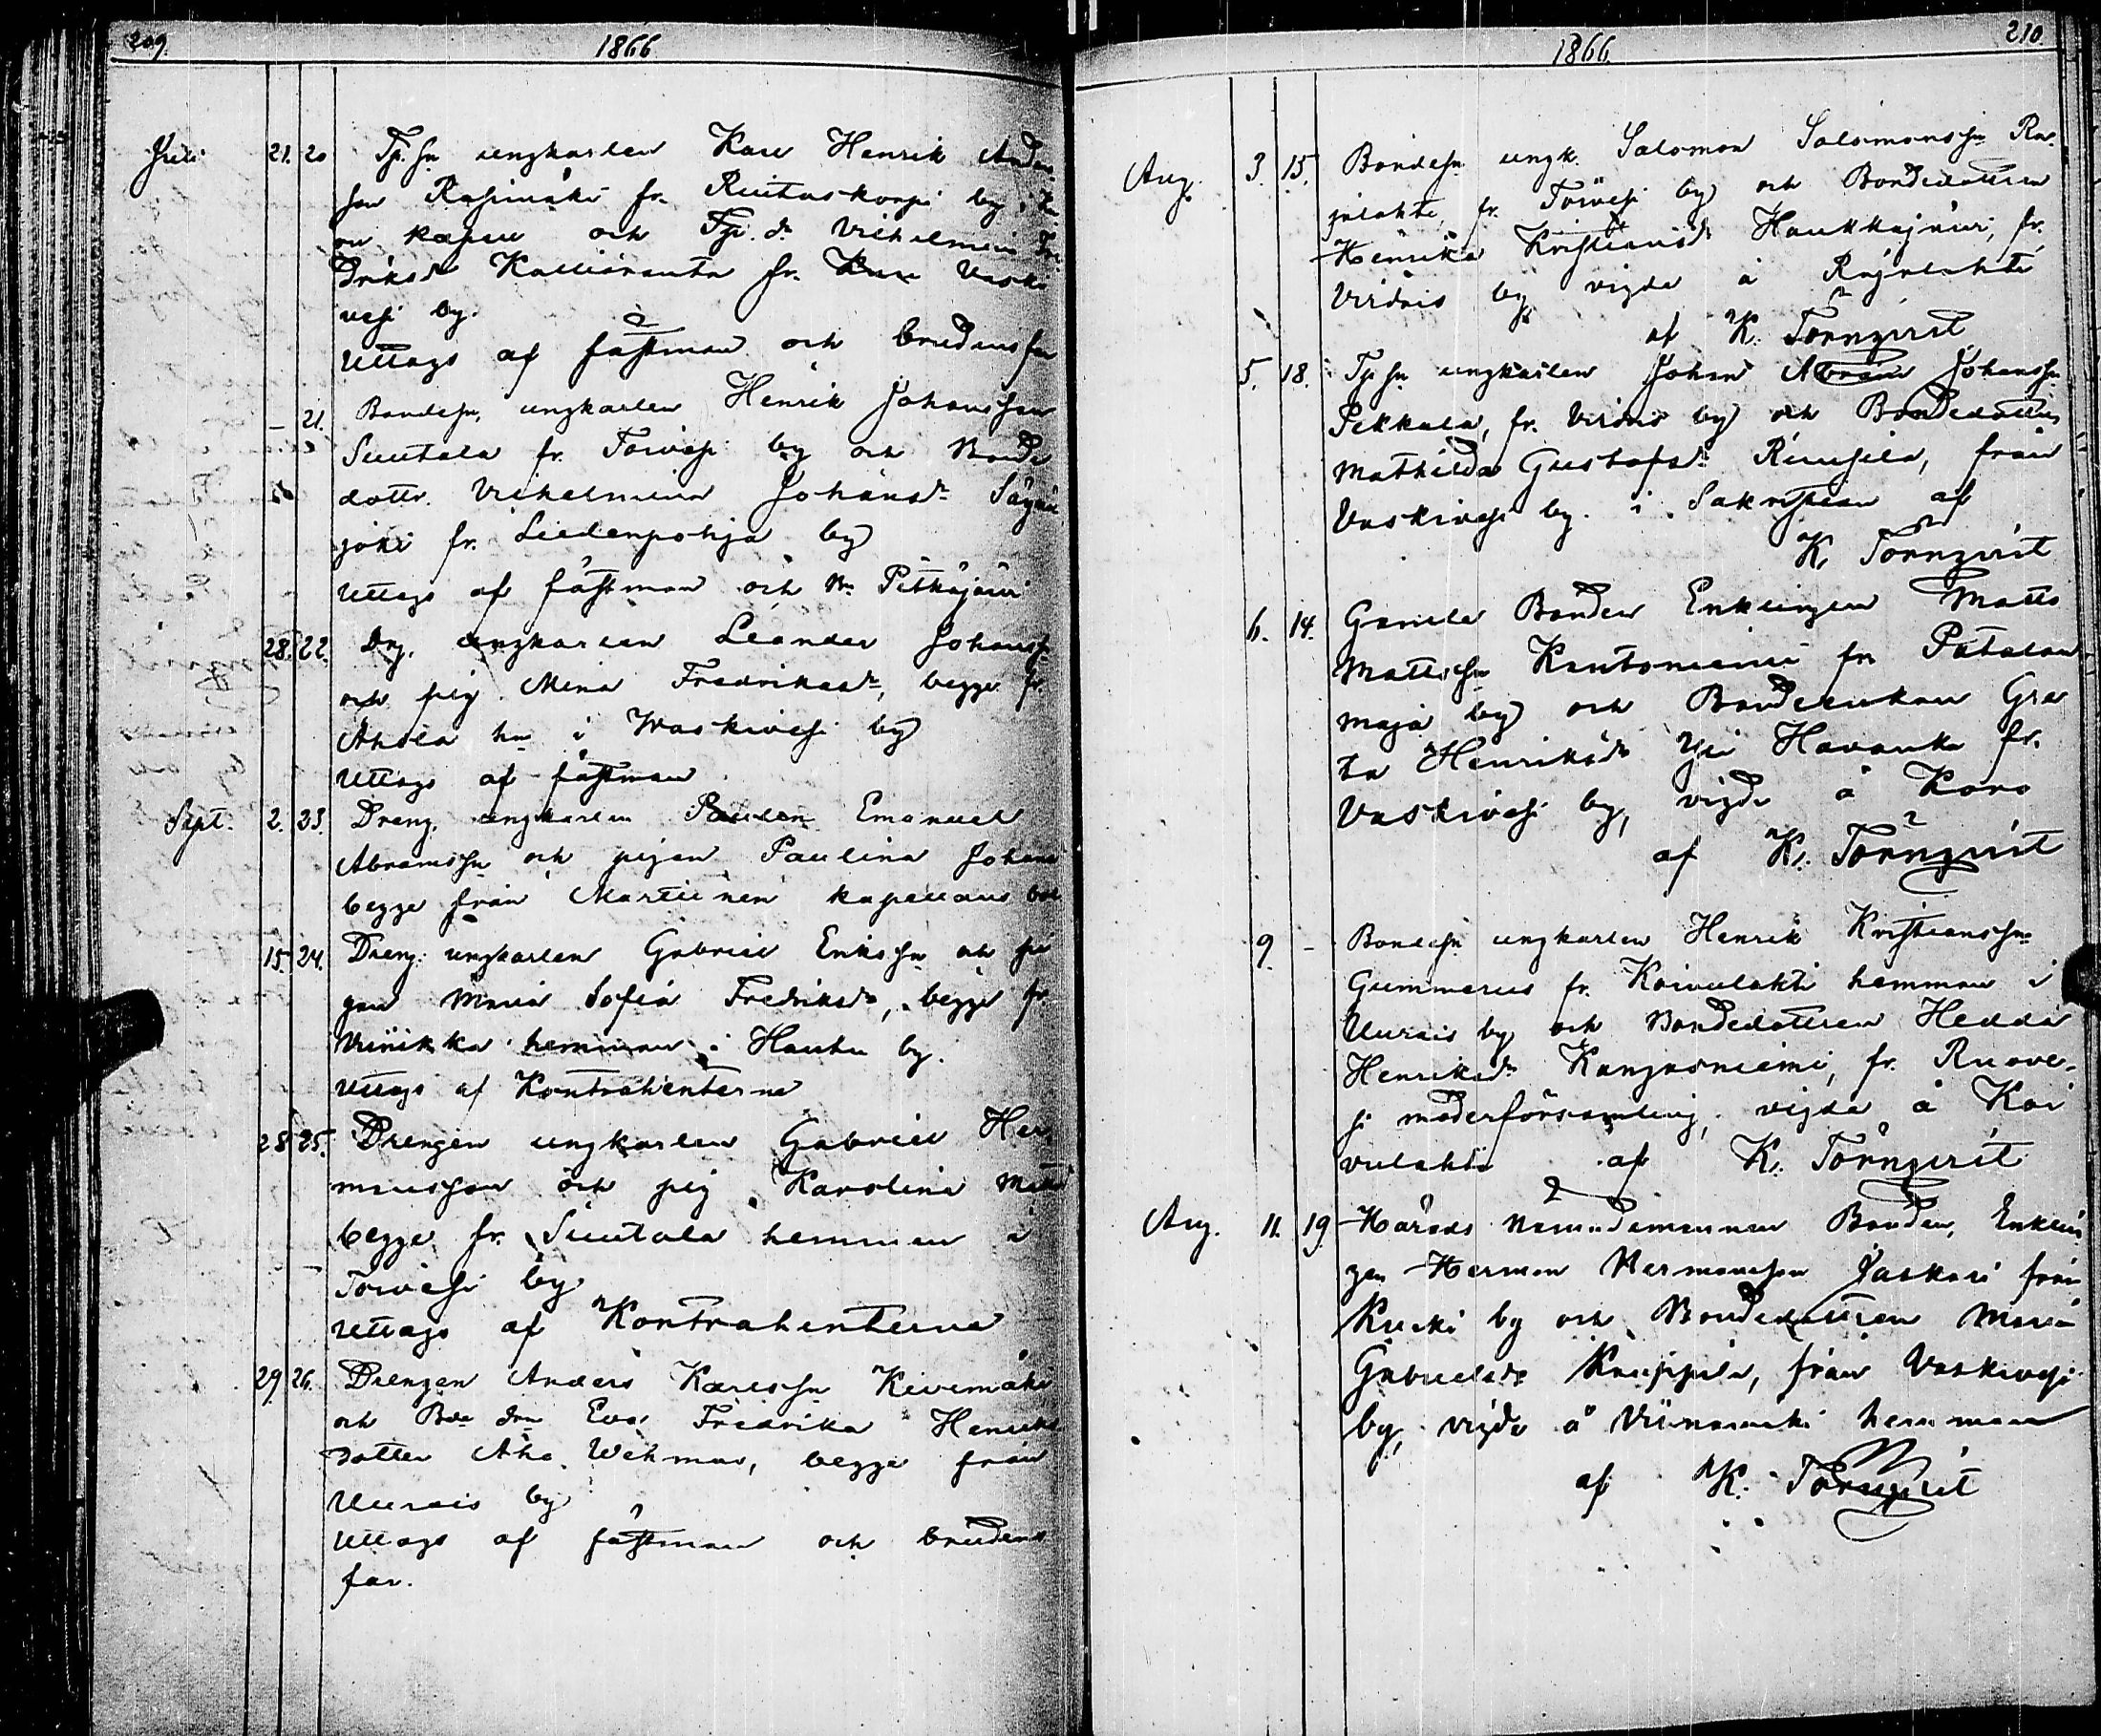 209.
1866.
Juli 21. 20 Tp.sn ungkarlen Karl Henrik Anders
son Rasimäki fr. Ruitaskorpi by i
kapell och Tp. dr. Vilhelmina Fre
driksdr Kallioranta fr. Vaski
vesi by.
Uttags af fästman och brudens far
– 21. Bondesn. ungkarlen Henrik Johansson
Suutala fr. Toivesi by och Bonde
dottr. Vilhelmina Johansdr Säynä
joki fr. Liedenpohja by
Uttags af fästman och Pitkäjärvi
28. 22. Drg. ungkarlen Leander Johanss
och pig. Mina Fredriksdr, begge fr.
Ahola hn i Waskivesi by
Uttags af fästman
Sept. 2. 23. Dreng. ungkarlen Emanuel
Abramssn och pigan Paulina Johans
begge från Marttinen kapellans bol
15. 24. Dreng. ungkarlen Gabriel Erikssn och pi
gan Maria Sofia Fredriksdr, begge fr.
Viinikka hemman i Hauhu by.
Uttags af Kontrahenterna
28. 25. Drengen ungkarlen Gabriel Her
mansson och pig. Karolina Matts
begge fr. Suutala hemman i
Toivesi by
Uttags af Kontrahenterna
29. 26. Drengen Anders Karlssn Kivimäki
och Bdedrn Eva Fredrika Henriks
dotter Aho Wehmas, begge från
Uurais by
Uttags af fästman och brudens
far.
210.
1866.
Aug. 3. 15. Bondesn ungk. Salomon Salomonssn Ra
jalahti, fr. Toivesi by och Bondedottren
Henrika Kristiansdr Haukkajärvi, fr.
Virdois by vigda å Rajalahti
af K. Törnqvist
5. 18. Tpsn ungkarlen Johan Abram Johanssn
Pekkala, fr. Virdois by och Bondedottren
Mathilda Gustafsdr Rinnsila, från
Vaskivesi by. i Sakristian af
K. Törnqvist
6. 14. Gamla Bonden Enklingen Matts
Mattssn Rautaniemi fr. Patalan
maja by och Bondeenkan Gre
ta Henriksdr Yli Havanka fr.
Vaskivesi by, vigde å Koro
af K. Törnqvist
9. – Bondesn ungkarlen Henrik Kristianssn
Gummerus fr. Koivulahti hemman i
Uurais by och Bondedottren Hedda
Henriksdr Kangasniemi, fr. Ruove-
si moderförsamling, vigda å Koi
vulahti af K. Törnqvist
Aug. 11. 19. Härads Nämndemannen Bonden, Enklin
gen Herman Hermansson Jaskari från
Kurki by och Bondedottren Maria
Gabrielsdr Knuppila, från Vaskivesi
by, vigde å Viinamäki hemman
af K. Törnqvist